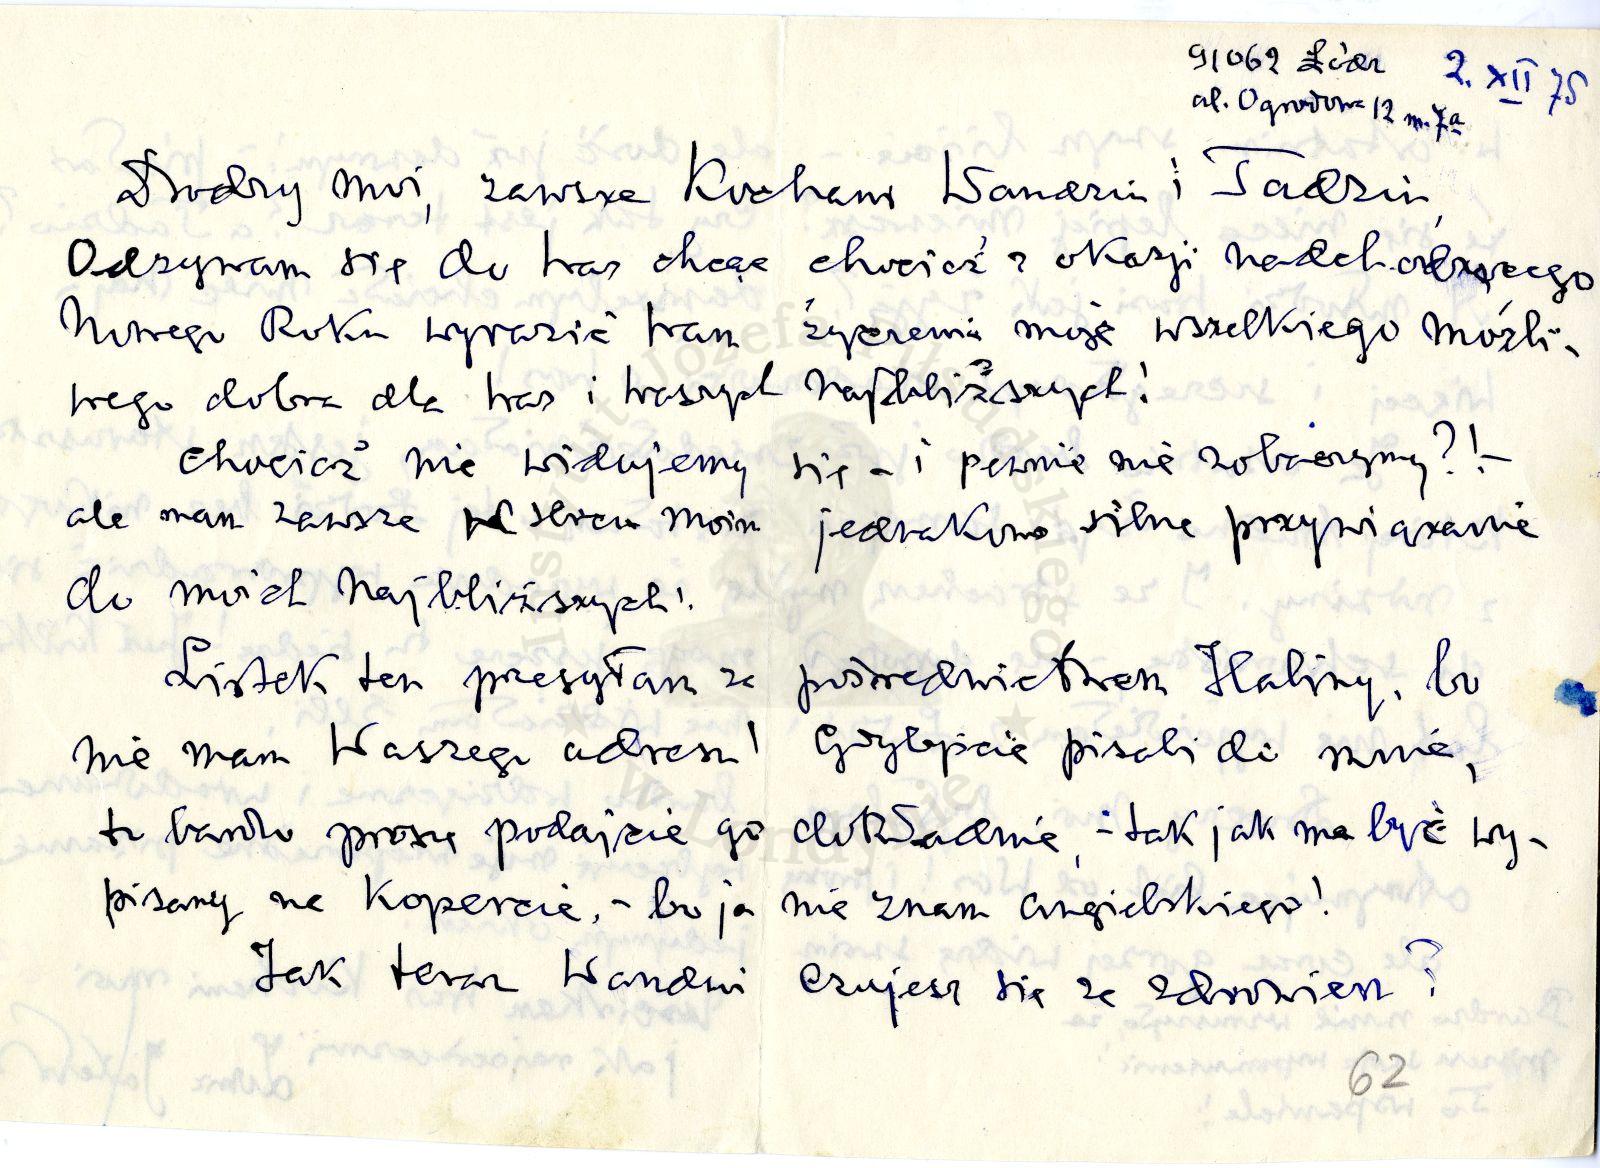 91062 Łódź
ul. Ogrodowa 12 m. 7a
2. XII 75
Drodzy moi, zawsze Kochani Wandziu i Tadziu,
Odzywam się do Was chcąc chociaż z okazji nadchodzącego
Nowego Roku wyrazić Wam życzenia moje wszelkiego możli-
wego dobra dla Was i Waszych Najbliższych!
Chociaż nie widujemy się – i pewnie nie zobaczymy?! –
ale mam zawsze w sercu moim jednakowo silne przywiązanie
do moich Najbliższych!
Listek ten przesyłam za pośrednictwem Haliny, bo
nie mam Waszego adresu! Gdybyście pisali do mnie,
to bardzo proszę podajcie go dokładnie, – tak jak ma być wy-
pisany na Kopercie, – bo ja nie znam angielskiego!
Jak teraz Wandziu czujesz się ze zdrowiem?
62
Instytut Józefa Piłsudskiego
w Londynie